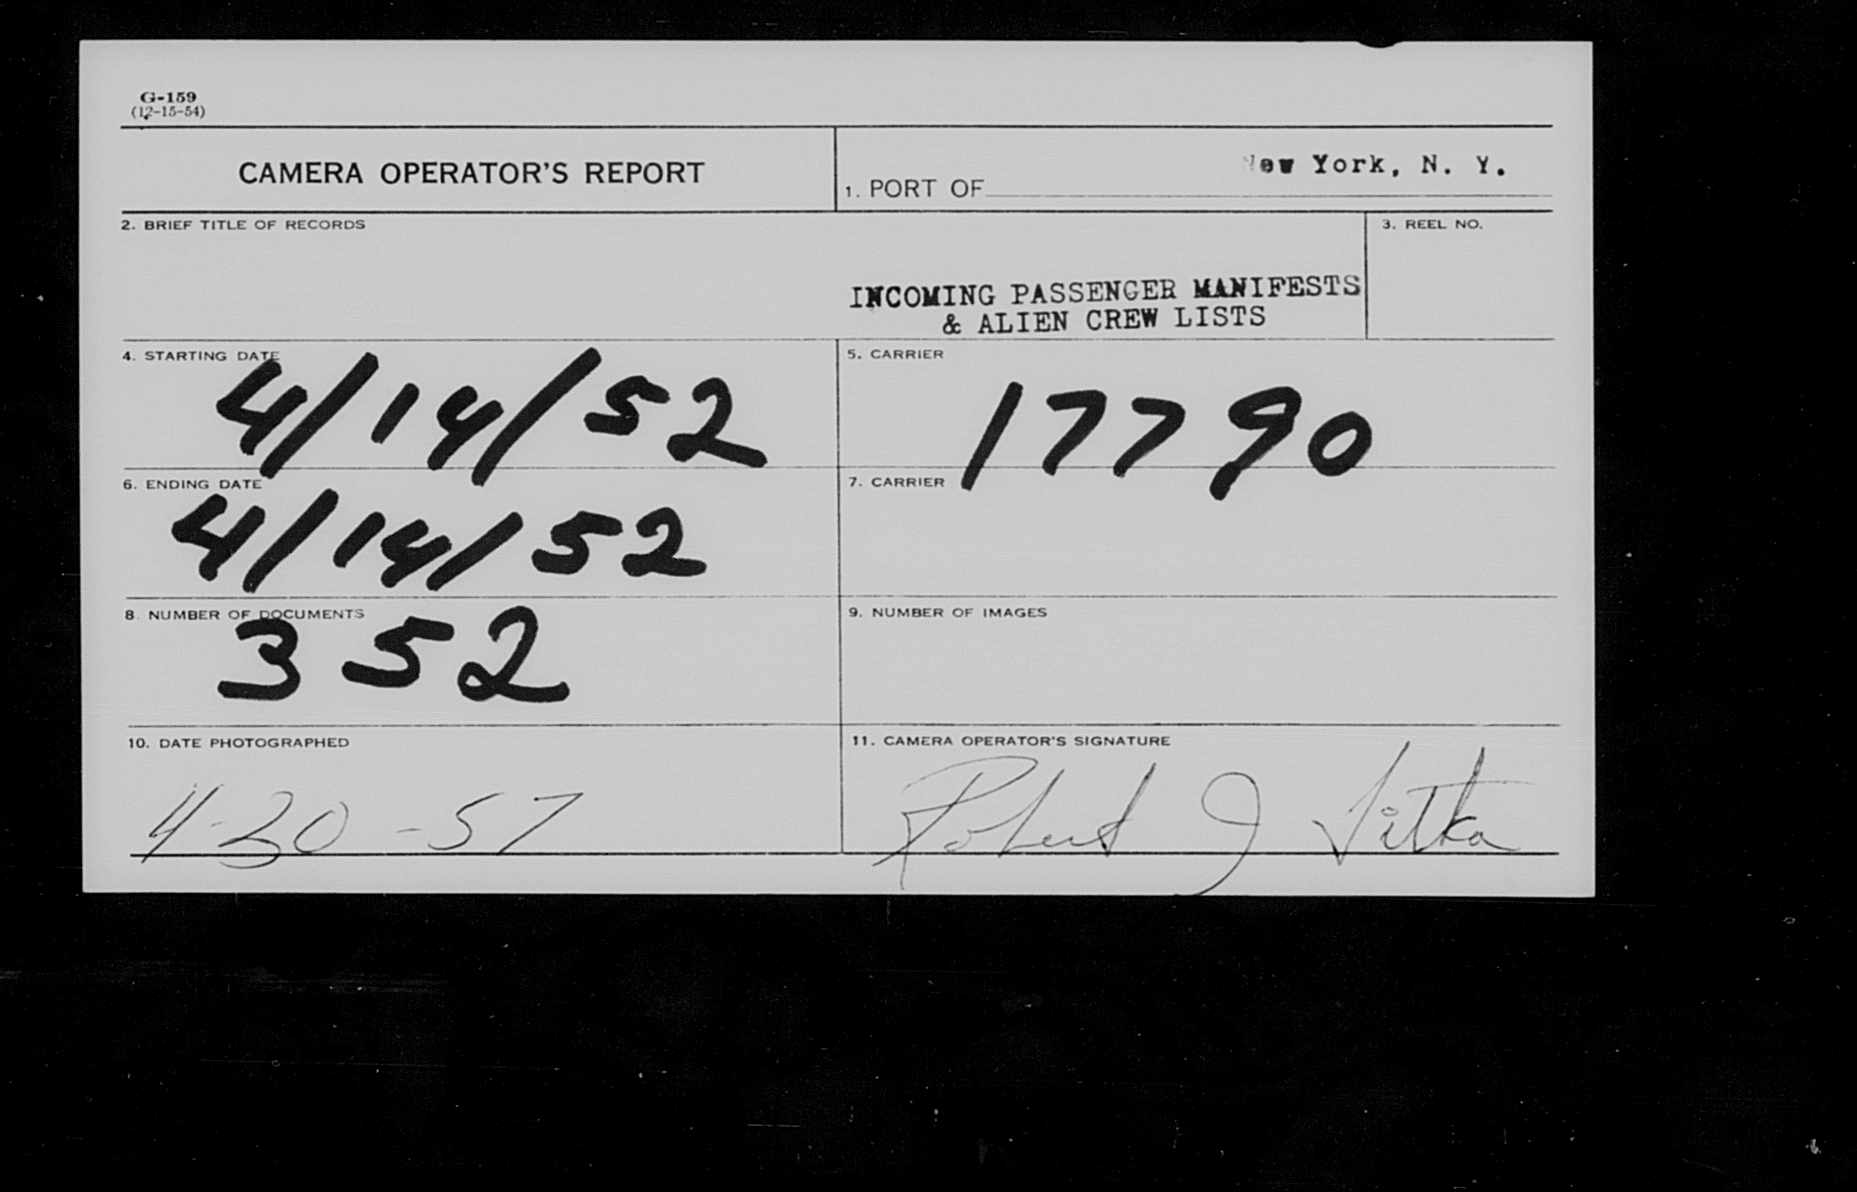 G-159
(12-15-54)
CAMERA OPERATOR'S REPORT
1. PORT OF New York, N. Y.
2. BRIEF TITLE OF RECORDS
INCOMING PASSENGER MANIFESTS
& ALIEN CREW LISTS
3. REEL NO.
4. STARTING DATE
4/14/52
5. CARRIER
17790
6. ENDING DATE
4/14/52
7. CARRIER
8. NUMBER OF DOCUMENTS
352
9. NUMBER OF IMAGES
10. DATE PHOTOGRAPHED
4-30-57
11. CAMERA OPERATOR'S SIGNATURE
Robert J